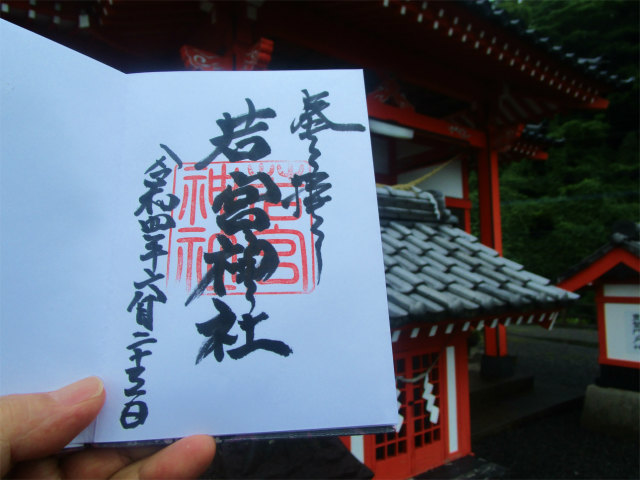 奉拝
若宮神社
令和四年六月二十五日
若宮
神社